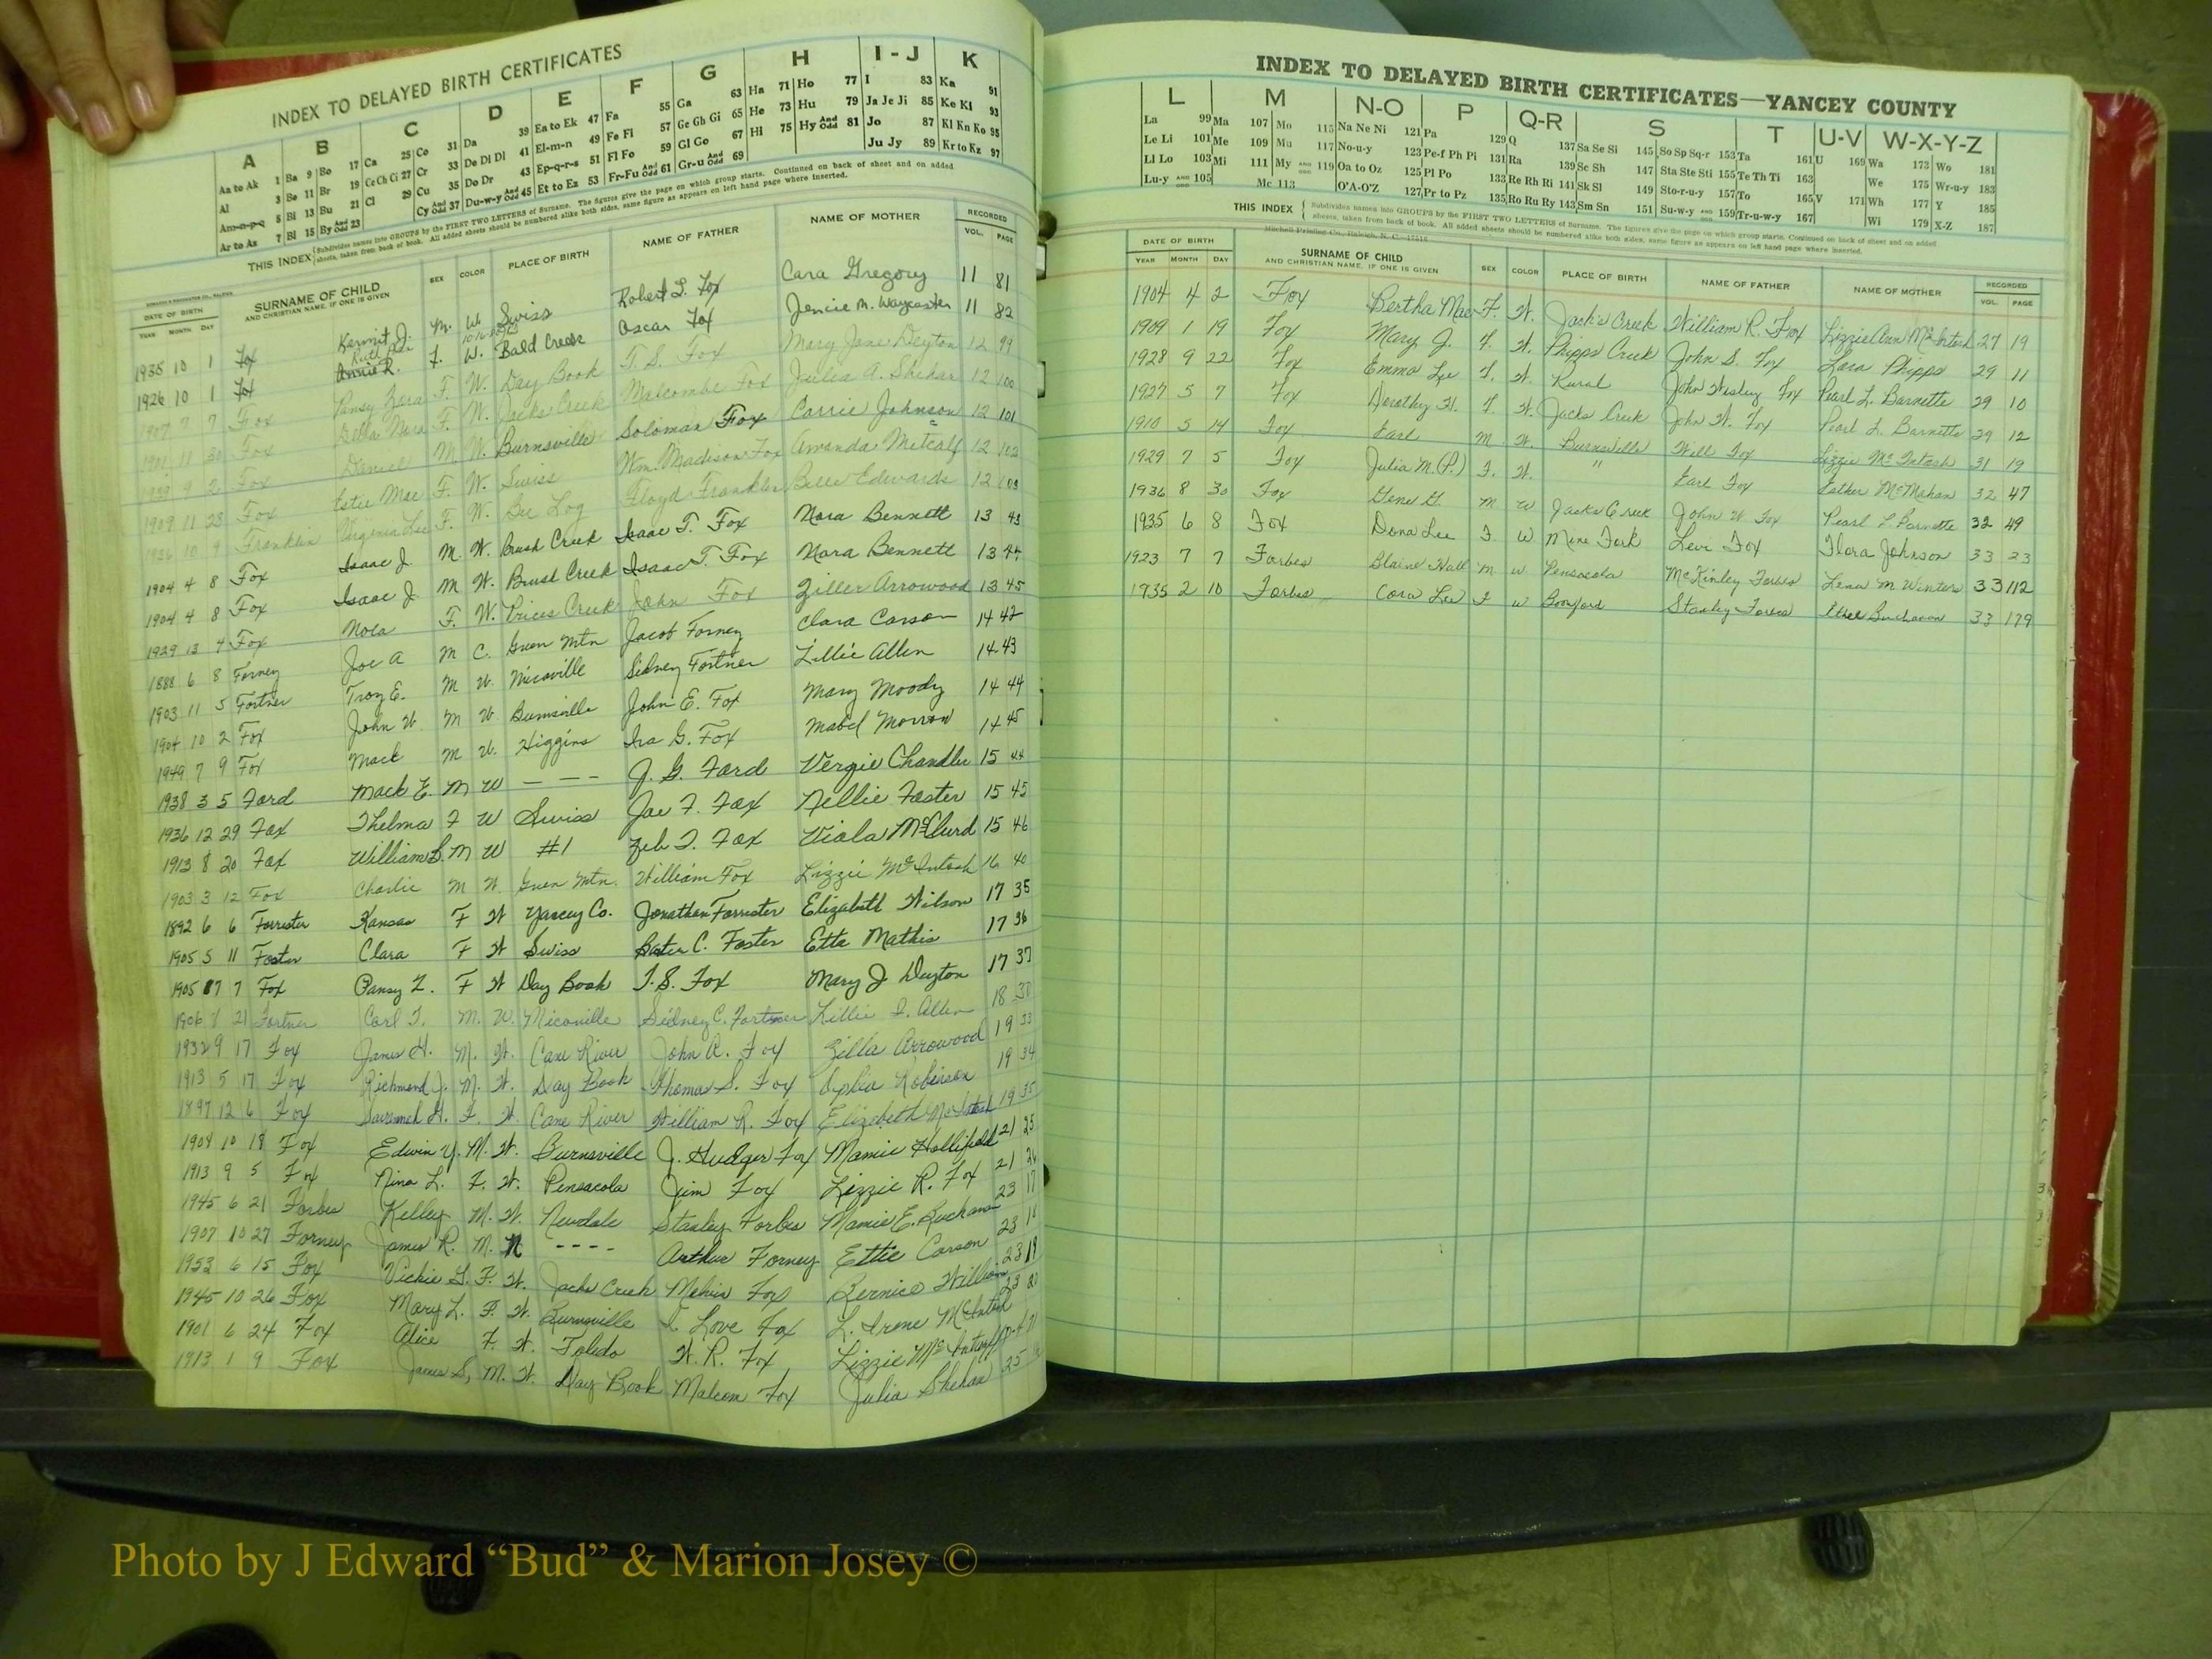 INDEX TO DELAYED BIRTH CERTIFICATES
A B C D E F G H I - J K
Aa to Ak 1 Ba 9 Bo 17 Ca 25 Co 31 Da 39 Ea to Ek 47 Fa 55 Ga 63 Ha 71 Ho 77 I 83 Ka 91
Al 3 Be 11 Br 19 Ce Ch Ci 27 Cr 33 De Di Dl 41 El-m-n 49 Fe Fi 57 Ge Gh Gi 65 He 73 Hu 79 Ja Je Ji 85 Ke Ki 93
Am-n-p-q 5 Bi 13 Bu 21 Cl 29 Cu 35 Do Dr 43 Ep-q-r-s 51 Fl Fo 59 Gl Go 67 Hi 75 Hy And Odd 81 Jo 87 Kl Kn Ko 95
Ar to Az 7 Bl 15 By And Odd 23 Cy And Odd 37 Du-w-y And Odd 45 Et to Ez 53 Fr-Fu And Odd 61 Gr-u And Odd 69 Ju Jy 89 Kr to Kz 97
THIS INDEX Subdivides names into GROUPS by the FIRST TWO LETTERS of Surname. The figures give the page on which group starts. Continued on back of sheet and on added
sheets, taken from back of book. All added sheets should be numbered alike both sides, same figure as appears on left hand page where inserted.
DATE OF BIRTH SURNAME OF CHILD SEX COLOR PLACE OF BIRTH NAME OF FATHER NAME OF MOTHER RECORDED
YEAR MONTH DAY AND CHRISTIAN NAME, IF ONE IS GIVEN VOL. PAGE
1935 10 1 Fox Kermit J. M. W. Swiss Robert L. Fox Cara Gregory 11 81
1926 10 1 Fox Annie R. F. W. Bald Creek Oscar Fox Jencie M. Waycaster 11 82
1907 7 7 Fox Pansy Zara F. W. Day Book T. S. Fox Mary Jane Deyton 12 99
1901 11 30 Fox Della Nora F. W. Jacks Creek Malcombe Fox Julia A. Shehan 12 100
9 2 Fox Daniel M. W. Burnsville Soloman Fox Carrie Johnson 12 101
1909 11 28 Fox Estie Mae F. W. Swiss Wm. Madison Fox Amanda Metcalf 12 102
1926 10 9 Franklin Virginia Lee F. W. Bee Log Floyd Franklin Belle Edwards 12 103
1904 4 8 Fox Isaac J. M. W. Brush Creek Isaac T. Fox Nora Bennett 13 43
1904 4 8 Fox Isaac J. M W. Brush Creek Isaac T. Fox Nora Bennett 13 44
1929 12 4 Fox Nora F. W. Prices Creek John Fox Ziller Arrowood 13 45
1888 6 8 Forney Joe A M C. Green Mtn Jacob Forney Clara Carson 14 42
1903 11 5 Fortner Troy E. M W. Micaville Sidney Fortner Lillie Allen 14 43
1904 10 2 Fox John W. M W. Burnsville John E. Fox Mary Moody 14 44
1949 7 9 Fox Mack M W. Higgins Ira G. Fox Mabel Morrow 14 45
1938 3 5 Ford Mack E. M W — — — J. G. Ford Vergie Chandler 15 44
1936 12 29 Fox Thelma F W Swiss Joe F. Fox Nellie Foster 15 45
1913 8 20 Fox William S. M W #1 Zeb T. Fox Viola McClurd 15 46
1903 3 12 Fox Charlie M W. Green Mtn. William Fox Lizzie McIntosh 16 40
1892 6 6 Forrester Kansas F W Yancey Co. Jonathan Forrester Elizabeth Wilson 17 35
1905 5 11 Foster Clara F W Swiss Bater C. Foster Etta Mathis 17 36
1905 7 7 Fox Pansy Z. F W Day Book T. S. Fox Mary J Deyton 17 37
1906 8 21 Fortner Carl T. M. W. Micaville Sidney C. Fortner Lillie I. Allen 18 30
1932 9 17 Fox James H. M. W. Cane River John A. Fox Zilla Arrowood 19 33
1913 5 17 Fox Richmond J. M. W. Day Book Thomas S. Fox Robinson 19 34
1897 12 6 Fox Savannah H. F. W. Cane River William R. Fox Elizabeth McIntosh 19 35
1904 10 18 Fox Edwin Y. M. W. Burnsville J. Hudger Fox Mamie Hollifield 21 25
1913 9 5 Fox Nina L. F. W. Pensacola Jim Fox Lizzie R. Fox 21 26
1945 6 21 Forbes Kelley M. W. Newdale Stanley Forbes Mamie E. Buchanan 23 17
1907 10 27 Forney James R. M. N - - - - Arthur Forney Ettie Carson 23 18
1953 6 15 Fox Vickie L. F. W. Jacks Creek Melvin Fox Bernice Willia 23 19
1945 10 26 Fox Mary L. F. W. Burnsville I. Love Fox L. Irene McIntosh 23 20
1901 6 24 Fox Alice F. W. Toledo W. R. Fox Lizzie McIntosh
1913 1 9 Fox James S. M. W. Day Book Malcom Fox Julia Shehan 25
INDEX TO DELAYED BIRTH CERTIFICATES—YANCEY COUNTY
L M N-O P Q-R S T U-V W-X-Y-Z
La 99 Ma 107 Mo 115 Na Ne Ni 121 Pa 129 Q 137 Sa Se Si 145 So Sp Sq-r 153 Ta 161 U 169 Wa 173 Wo 181
Le Li 101 Me 109 Mu 117 No-u-y 123 Pe-f Ph Pi 131 Ra 139 Sc Sh 147 Sta Ste Sti 155 Te Th Ti 163 We 175 Wr-u-y 183
Ll Lo 103 Mi 111 My AND ODD 119 Oa to Oz 125 Pl Po 133 Re Rh Ri 141 Sk Sl 149 Sto-r-u-y 157 To 165 V 171 Wh 177 Y 185
Lu-y AND ODD 105 Mc 113 O'A-O'Z 127 Pr to Pz 135 Ro Ru Ry 143 Sm Sn 151 Su-w-y AND ODD 159 Tr-u-w-y 167 Wi 179 X-Z 187
THIS INDEX Subdivides names into GROUPS by the FIRST TWO LETTERS of Surname. The figures give the page on which group starts. Continued on back of sheet and on added
sheets, taken from back of book. All added sheets should be numbered alike both sides, same figure as appears on left hand page where inserted.
Mitchell Printing Co., Raleigh, N. C.
DATE OF BIRTH SURNAME OF CHILD SEX COLOR PLACE OF BIRTH NAME OF FATHER NAME OF MOTHER RECORDED
YEAR MONTH DAY AND CHRISTIAN NAME, IF ONE IS GIVEN VOL. PAGE
1904 4 2 Fox Bertha Mae F. W. Jack's Creek William R. Fox Lizzie Ann McIntosh 27 19
1909 1 19 Fox Mary J. F. W. Phipps Creek John S. Fox Lora Phipps 29 11
1928 9 22 Fox Emma Lee F. W. Rural John Wesley Fox Pearl L. Barnette 29 10
1927 5 7 Fox Dorothy H. F. W. Jacks Creek John W. Fox Pearl L. Barnette 29 12
1910 5 14 Fox Earl M W. Burnsville Will Fox Lizzie McIntosh 31 19
1929 7 5 Fox Julia M. (P.) F. W. " Earl Fox Esther McMahan 32 47
1936 8 30 Fox Gene G. M W Jacks Creek John W Fox Pearl L Barnette 32 49
1935 6 8 Fox Dona Lee F. W Mine Fork Levi Fox Flora Johnson 33 23
1923 7 7 Forbes Blaine Hall M W. Pensacola McKinley Forbes Lena M Winters 33 112
1935 2 10 Forbes Cora Lee F W Stanley Forbes Buchanan 33 179
Photo by J Edward “Bud” & Marion Josey ©